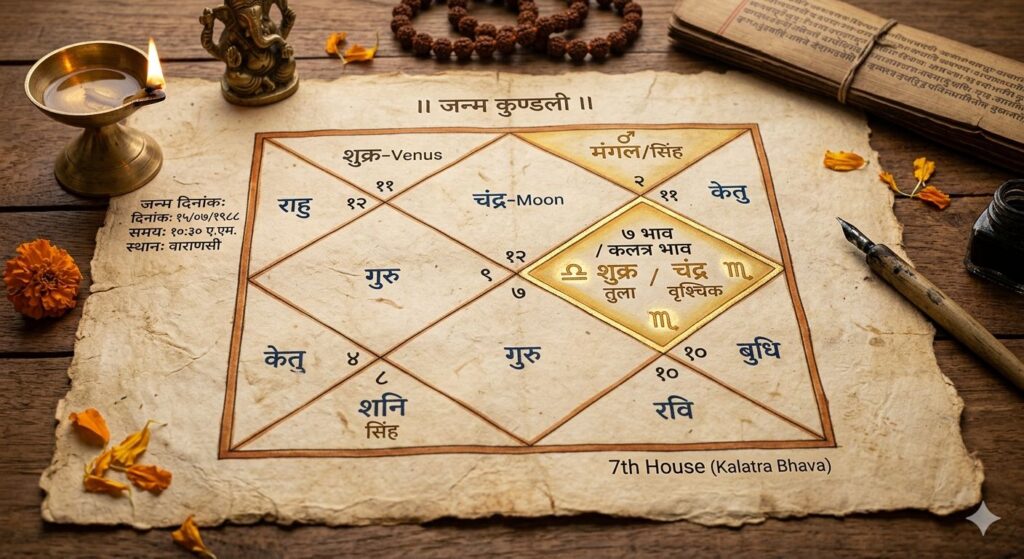 ॥ जन्म कुण्डली ॥
शुक्र-Venus
♂
मंगल/सिंह
११
२
राहु
१२
चंद्र-Moon
११
केतु
जन्म दिनांक:
दिनांक: १५/०७/१९८८
समय: १०:३० ए.एम.
स्थान: वाराणसी
७ भाव
/ कलत्र भाव
१२
गुरु
९
♎ शुक्र / चंद्र ♏
७
तुला वृश्चिक
♏
केतु
४
गुरु
१०
बुधि
८
१०
शनि
रवि
सिंह
7th House (Kalatra Bhava)